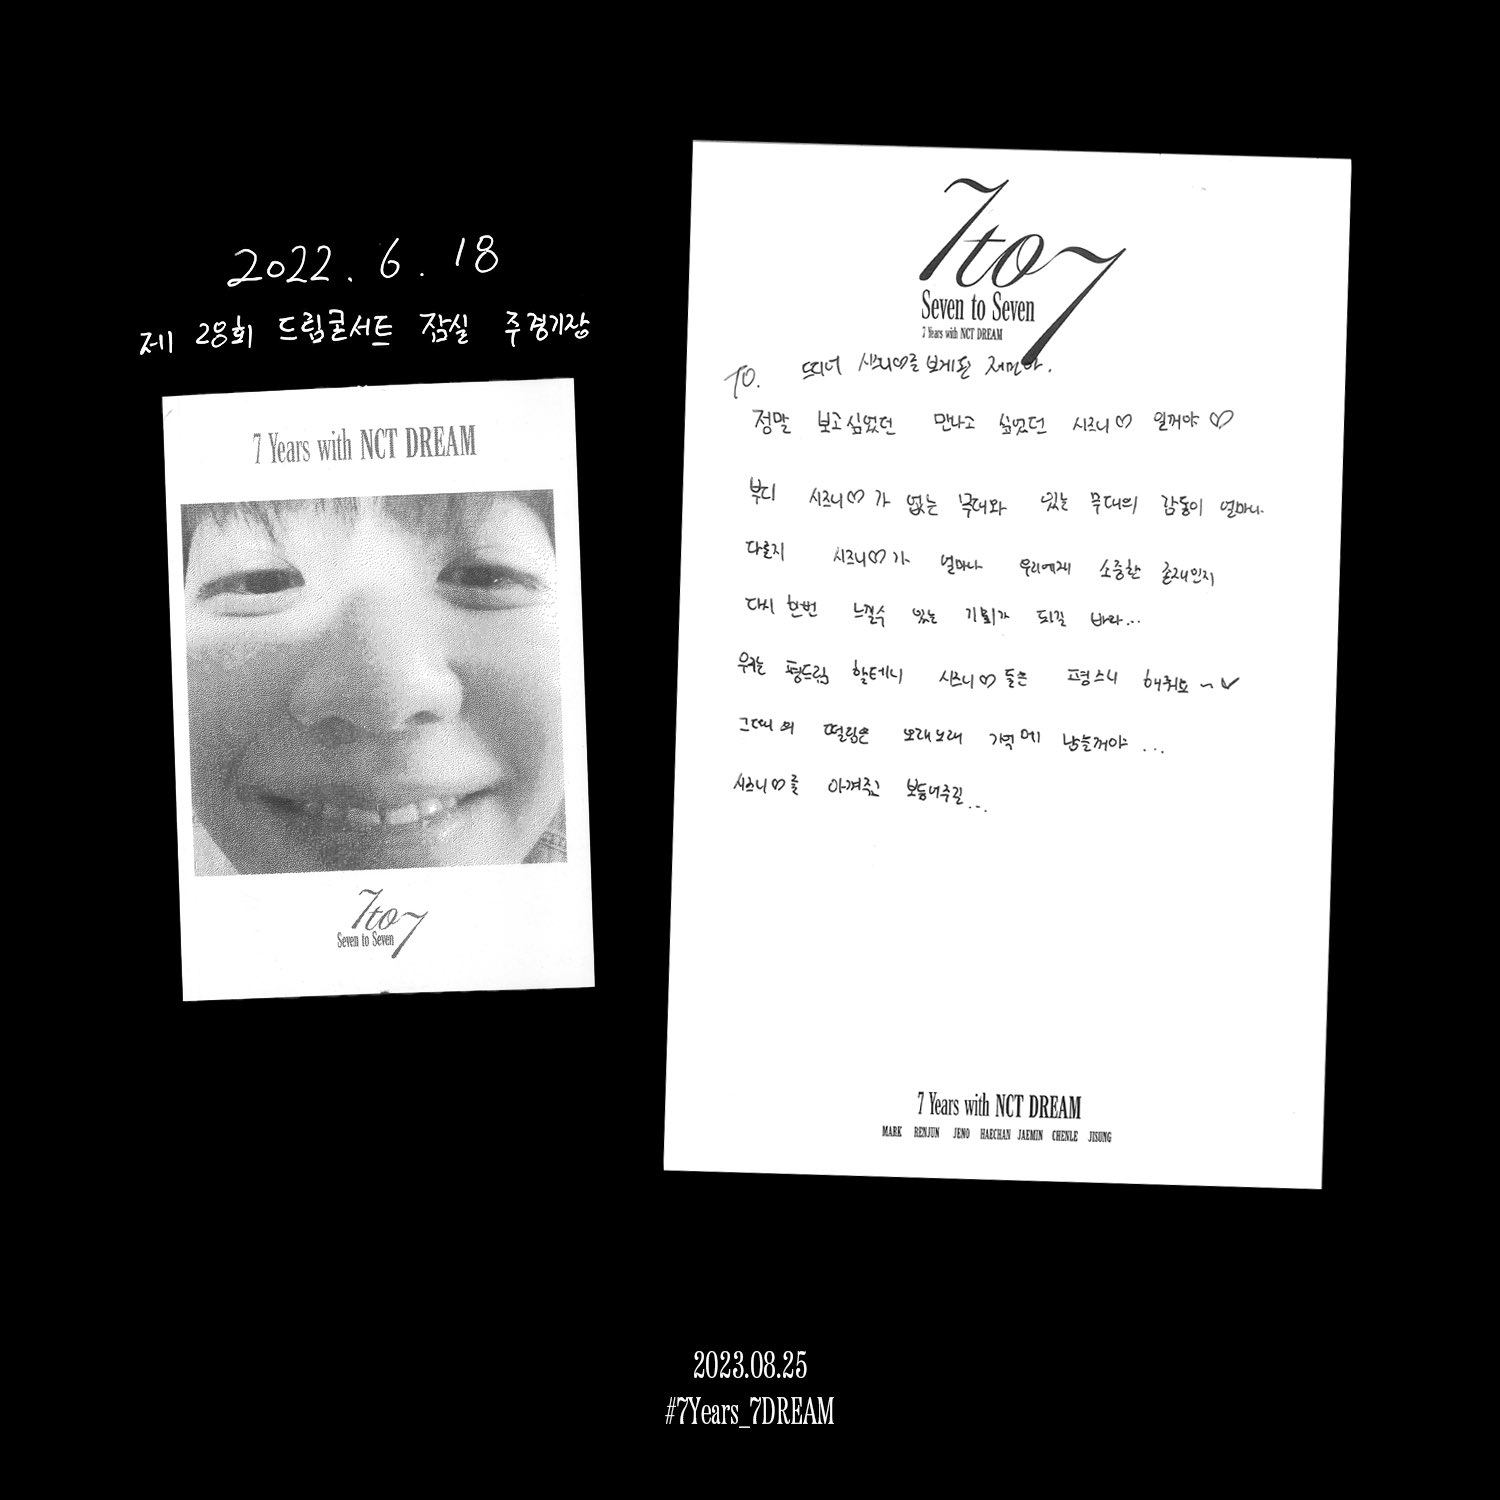 2022. 6. 18
제 28회 드림콘서트 잠실 주경기장
7 Years with NCT DREAM
7to7
Seven to Seven
7to7
Seven to Seven
7 Years with NCT DREAM
TO. 시즈니♡를 보게된 재민아.
정말 보고싶었던 만나고 싶었던 시즈니♡ 일꺼야♡
부디 시즈니♡가 없는 무대와 있는 무대의 감동이 얼마나
다를지 시즈니♡가 얼마나 우리에게 소중한 존재인지
다시 한번 느낄수 있는 기회가 되길 바라...
우리는 평드림 할테니 시즈니♡들은 평즈니 해줘요~✓
그때의 떨림은 오래오래 기억에 남을꺼야...
시즈니♡를 아껴주고 보듬어주길...
7 Years with NCT DREAM
MARK RENJUN JENO HAECHAN JAEMIN CHENLE JISUNG
2023.08.25
#7Years_7DREAM